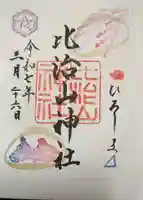 比治山神社
ひろしま
令和七年
三月二十六日